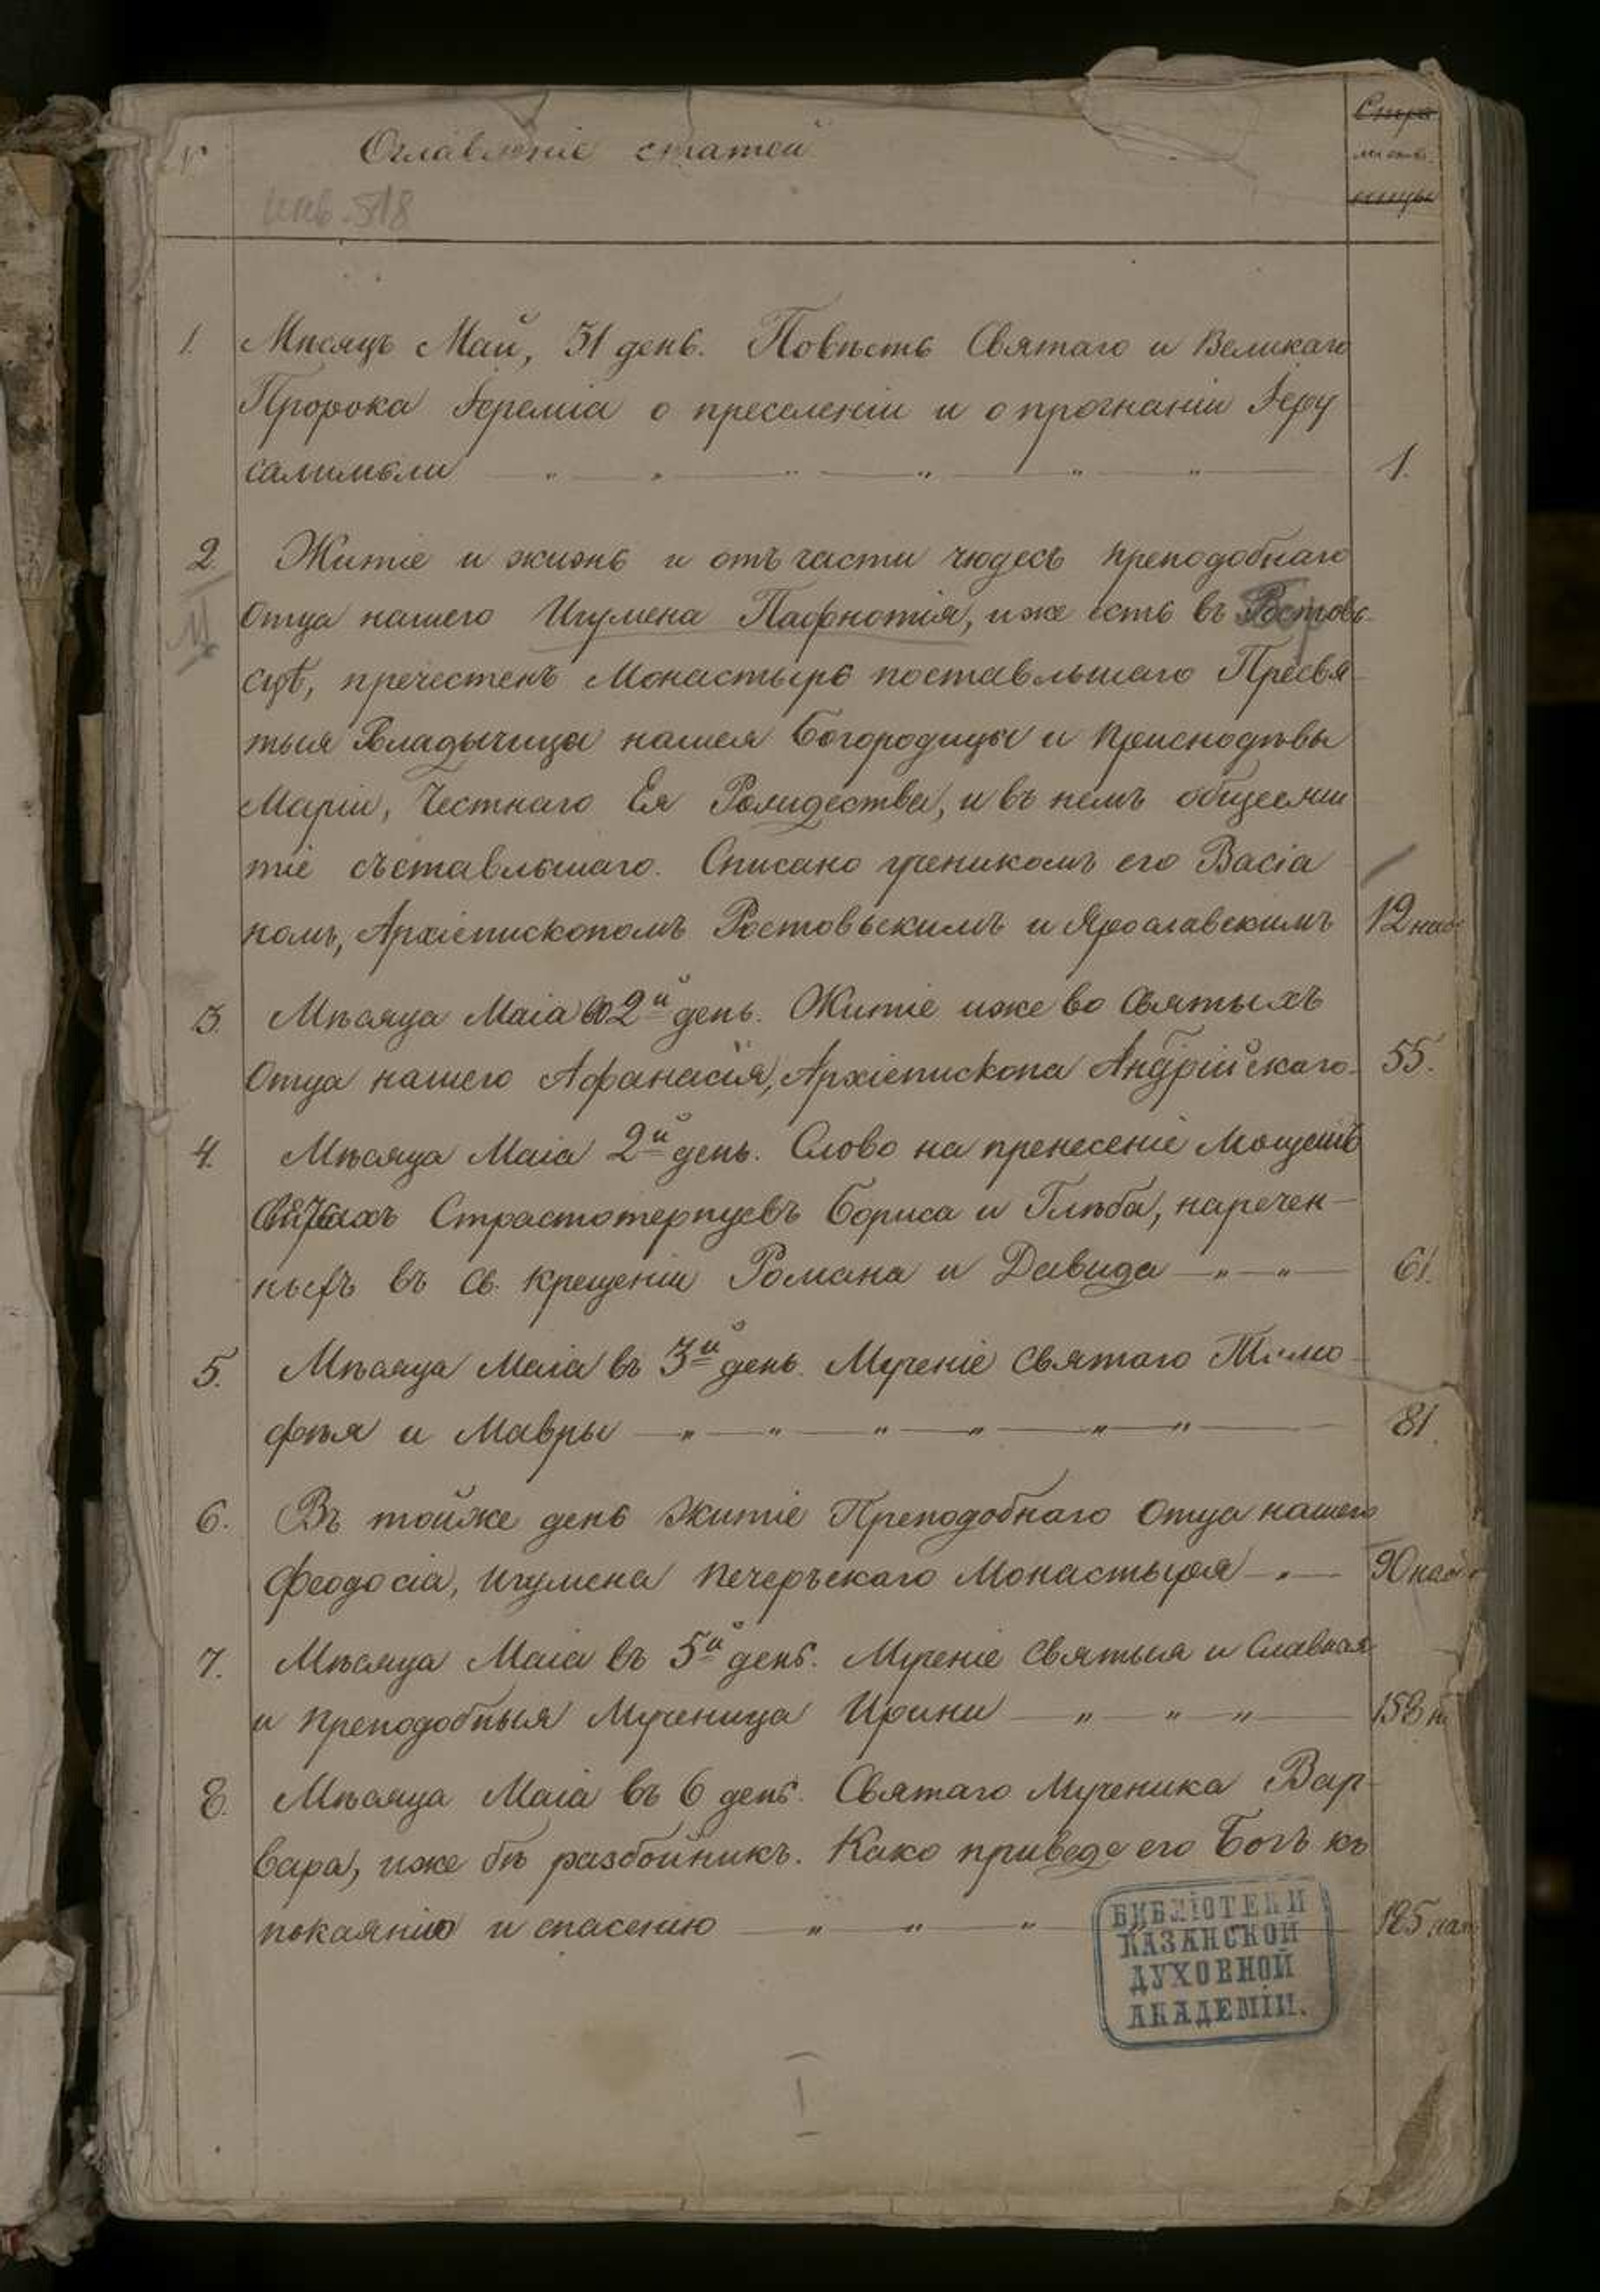 Оглавленіе статей
Стра
листъ
ницы
инв. 518
1. Мѣсяцъ Май, 31 день. Повѣсть Святаго и Великаго
Пророка Іереміа о преселеніи и о прогнаніи Іеру
салимьли 1.
2. Житіе и жизнь и отъ части чюдесъ преподобнаго
Отца нашего Игумена Пафнотія, иже есть въ
сцѣ, пречестенъ Монастырь поставльшаго Пресвя-
тыя Владычицы нашея Богородицы и Приснодѣвы
Маріи, Честнаго Ея Рождества, и въ немъ общеежи
тіе съставльшаго. Списано ученикомъ его Васіа
номъ, Архіепископомъ Ростовьскимъ и Ярославскимъ 12 наоб
3. Мѣсяца Маіа во 2й день. Житіе иже во Святыхъ
Отца нашего Афанасія, Архіепископа 55.
4. Мѣсяца Маіа 2й день. Слово на пренесеніе Мощемъ
Святыхъ Страстотерпцевъ Бориса и Глѣба, наречен-
ныхъ въ Св. Крещеніи Романа и Давида 61.
5. Мѣсяца Маіа въ 3й день. Мученіе Святаго Тимо-
фѣя и Мавры 81.
6. Въ тойже день Житіе Преподобнаго Отца нашего
Феодосіа, Игумена Печеръскаго Монастыря 90 наоб
7. Мѣсяца Маіа въ 5й день. Мученіе Святыя и Славныя
и преподобныя Мученица Ирини 158 н
8. Мѣсяца Маіа въ 6 день. Святаго Мученика Вар-
вара, иже бѣ разбойникъ. Како приведе его Богъ къ
покаянію и спасенію 185 на
БИБЛІОТЕКИ
КАЗАНСКОЙ
ДУХОВНОЙ
АКАДЕМІИ.
I